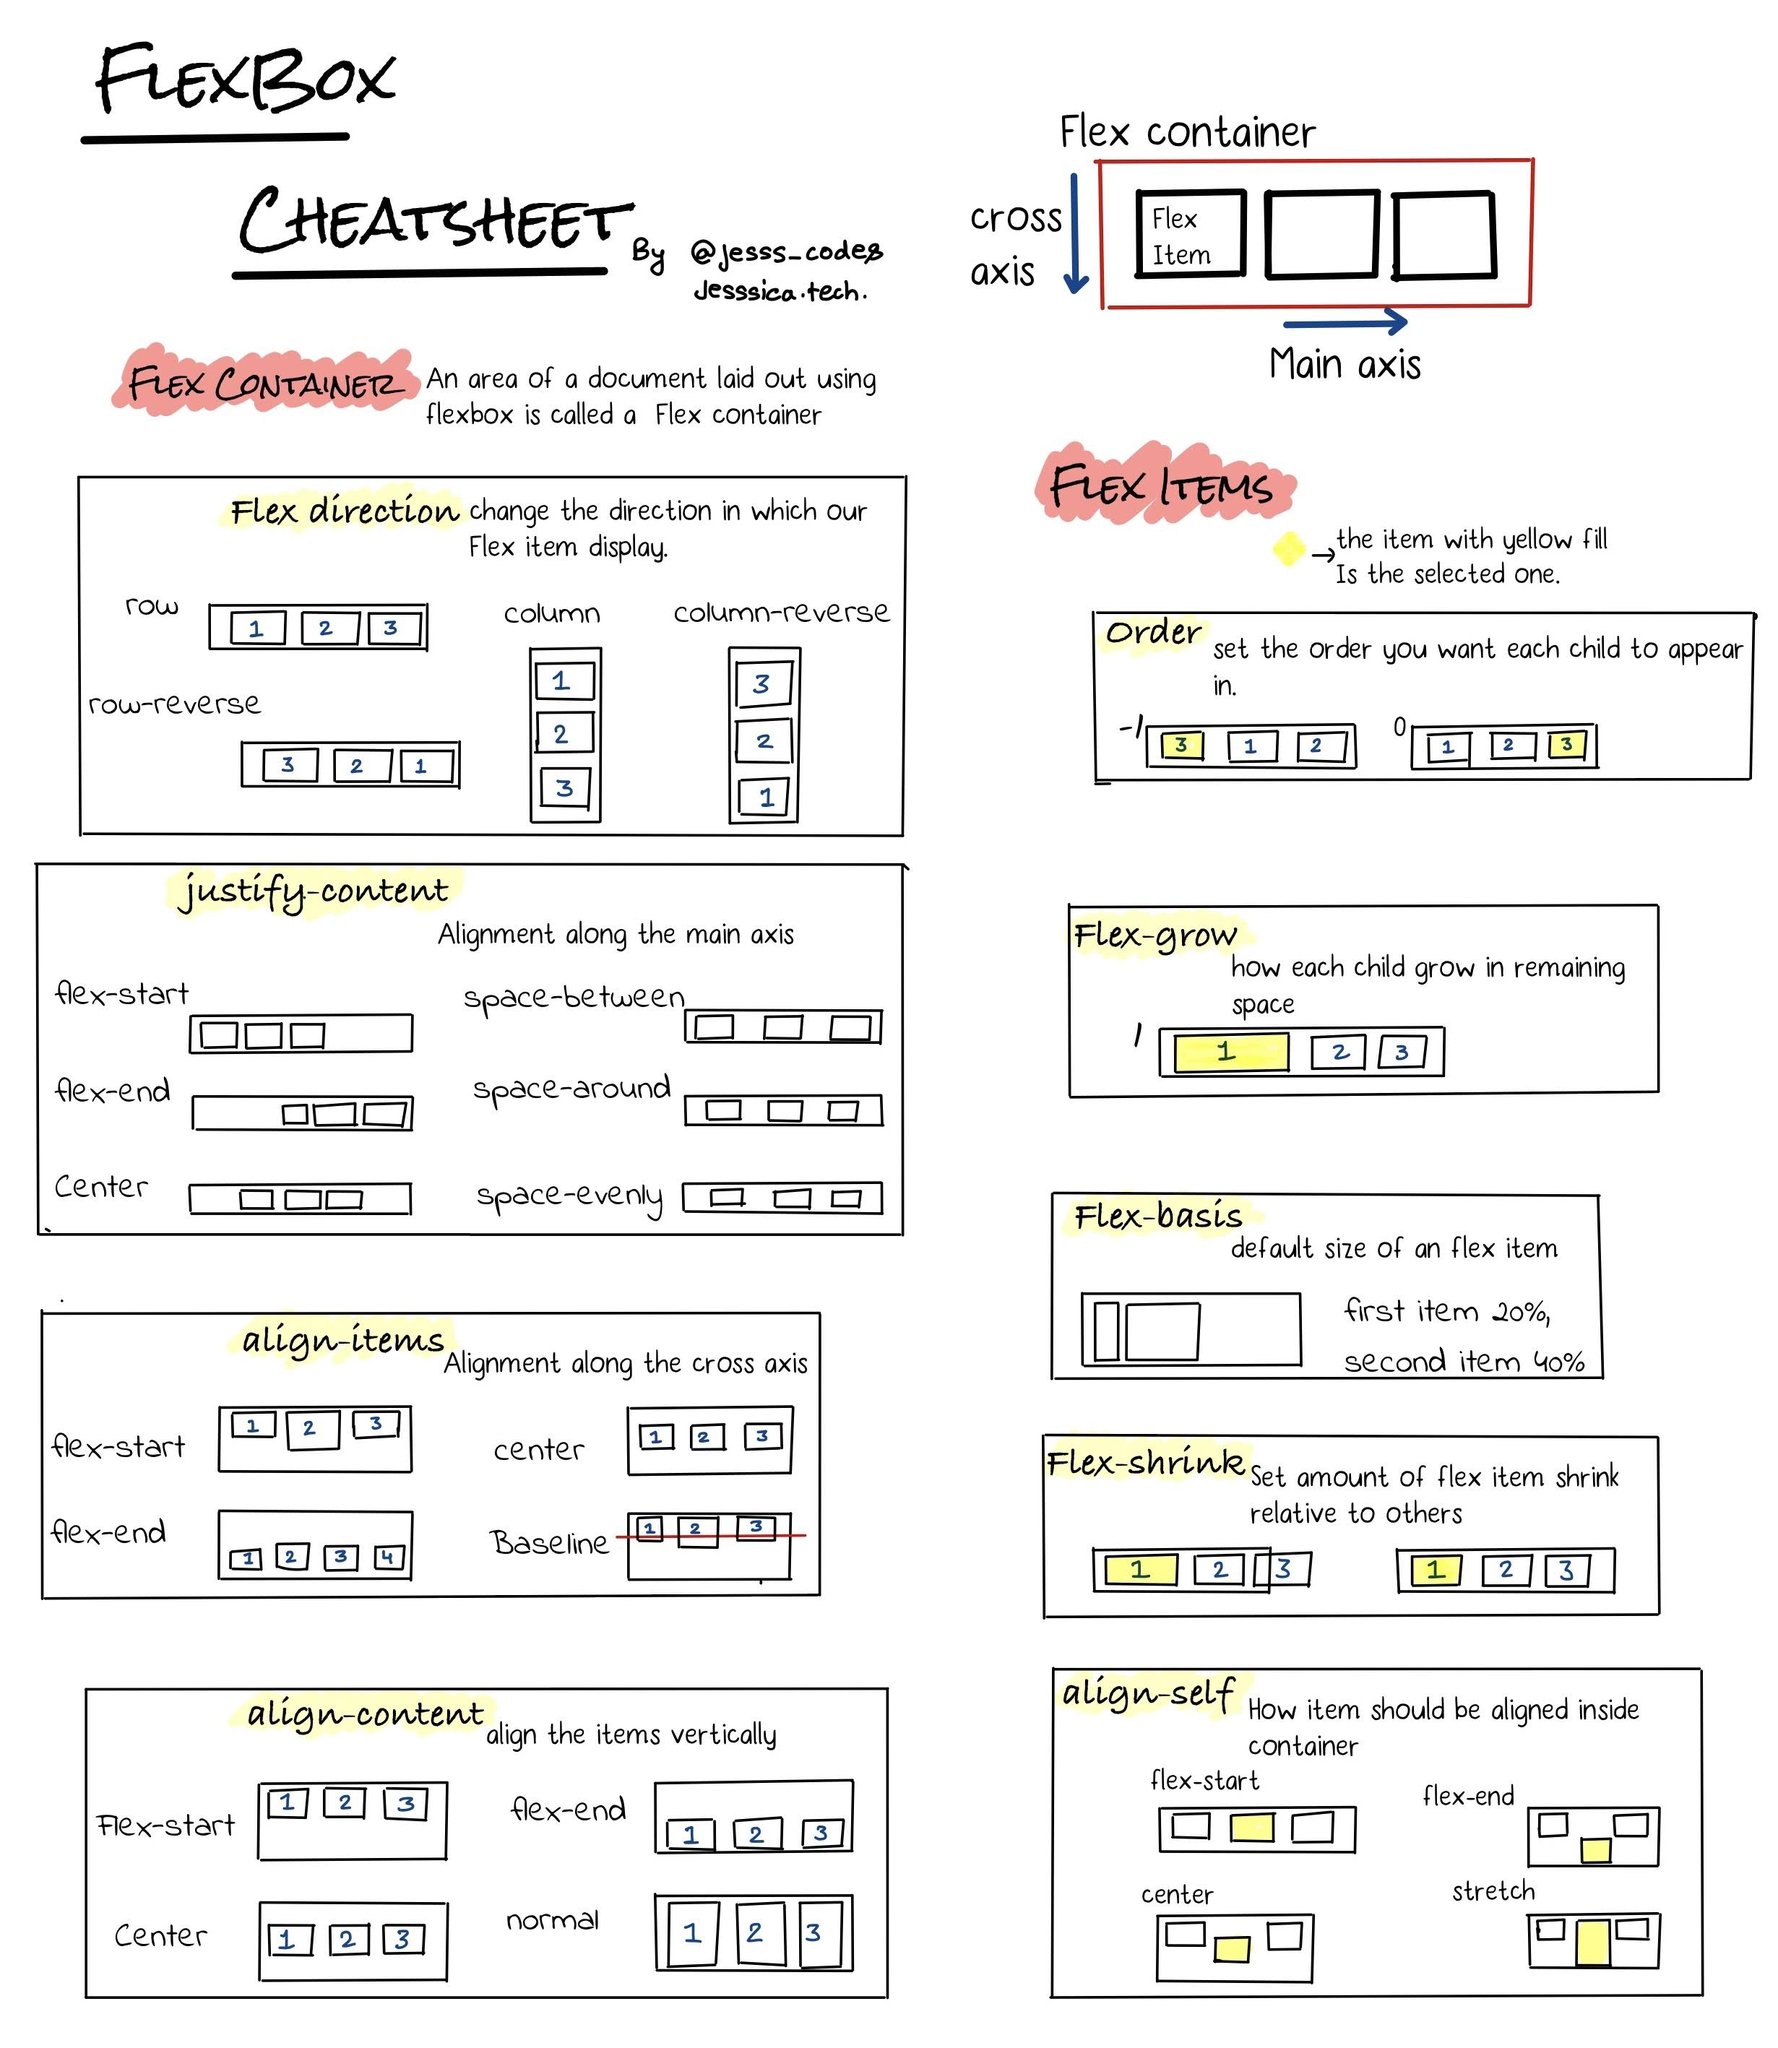 FLEXBOX
CHEATSHEET
By @jesss_codes
Jesssica.tech.
Flex container
cross
axis
Flex
Item
Main axis
FLEX CONTAINER
An area of a document laid out using
flexbox is called a Flex container
Flex direction change the direction in which our
Flex item display.
row
1 2 3
row-reverse
3 2 1
column
1
2
3
column-reverse
3
2
1
justify-content
Alignment along the main axis
flex-start
space-between
flex-end
space-around
Center
space-evenly
align-items
Alignment along the cross axis
flex-start
1 2 3
center
1 2 3
flex-end
1 2 3 4
Baseline
1 2 3
align-content
align the items vertically
Flex-start
1 2 3
flex-end
1 2 3
Center
1 2 3
normal
1 2 3
FLEX ITEMS
the item with yellow fill
Is the selected one.
Order
set the order you want each child to appear
in.
-1
3 1 2
0
1 2 3
Flex-grow
how each child grow in remaining
space
1
1 2 3
Flex-basis
default size of an flex item
first item 20%,
second item 40%
Flex-shrink
Set amount of flex item shrink
relative to others
1 2 3
1 2 3
align-self
How item should be aligned inside
container
flex-start
flex-end
center
stretch